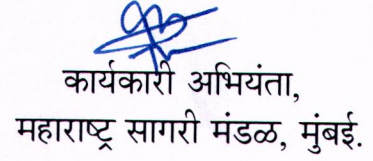 कार्यकारी अभियंता,
महाराष्ट्र सागरी मंडळ, मुंबई.